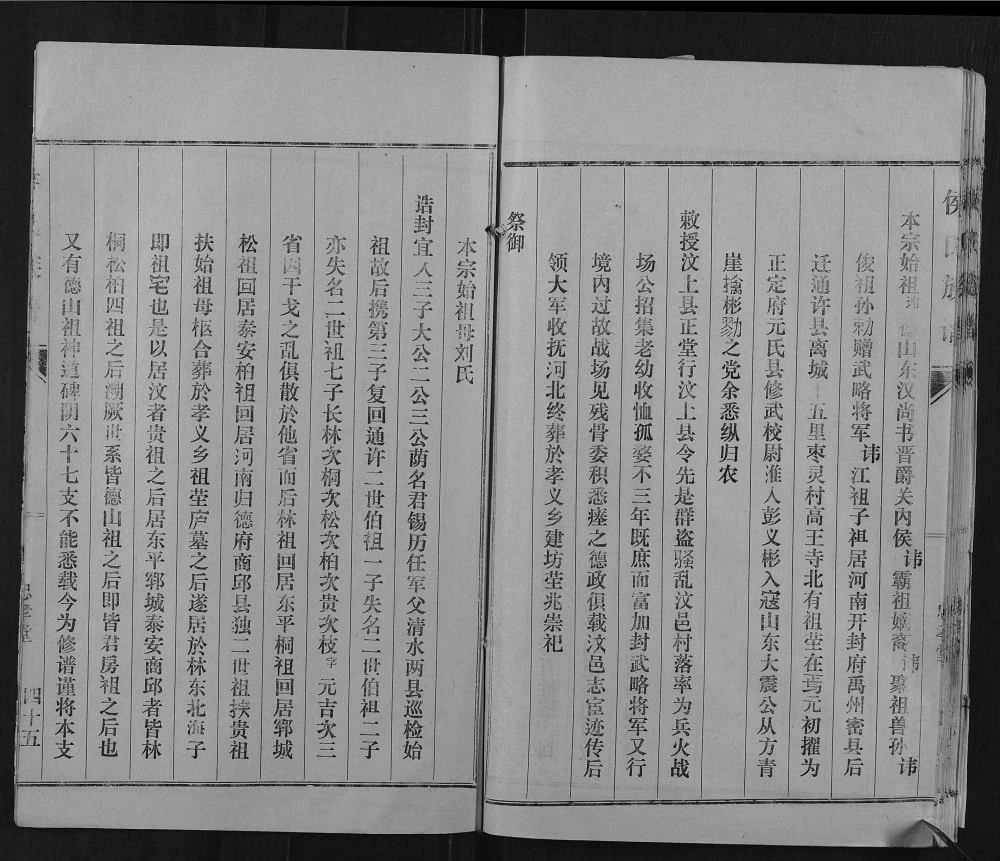 侯氏族谱
本宗始祖讳 山东汉尚书晋爵关内侯讳霸祖嫡裔 讳 聚祖兽孙讳
俊祖孙勑赠武略将军讳江祖子祖居河南开封府禹州密县后
迁通许县离城十五里枣灵村高王寺北有祖茔在焉元初擢为
正定府元氏县修武校尉淮人彭义彬入寇山东大震公从方青
崖擒彬勠之党余悉纵归农
敕授汶上县正堂行汶上县令先是群盗骚乱汶邑村落率为兵火战
场公招集老幼收恤孤婺不三年既庶而富加封武略将军又行
境内过故战场见残骨委积悉瘗之德政俱载汶邑志宦迹传后
领大军收抚河北终葬於孝义乡建坊茔兆崇祀
祭御
本宗始祖母刘氏
诰封宜人三子大公二公三公荫名君锡历任军父清水两县巡检始
祖故后携第三子复回通许二世伯祖一子失名二世伯祖二子
亦失名二世祖七子长林次桐次松次柏次贵次枝字元吉次三
省因干戈之乱俱散於他省而后林祖回居东平桐祖回居郓城
松祖回居泰安柏祖回居河南归德府商邱县独二世祖挟贵祖
扶始祖母柩合葬於孝义乡祖茔庐墓之后遂居於林东北海子
即祖宅也是以居汶者贵祖之后居东平郓城泰安商邱者皆林
桐松柏四祖之后溯厥世系皆德山祖之后即皆君房祖之后也
又有德山祖神道碑阴六十七支不能悉载今为修谱谨将本支
四十五